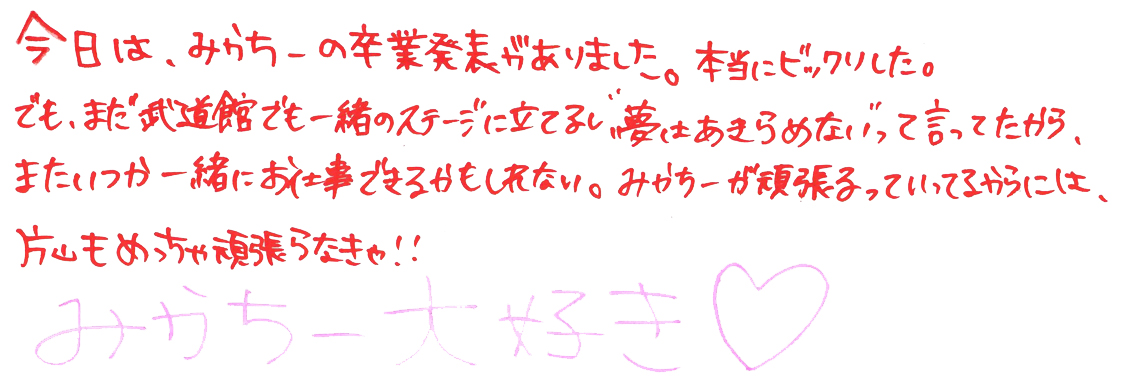 今日は、みかちーの卒業発表がありました。本当にビックリした。
でも、まだ武道館でも一緒のステージに立てるし、"夢はあきらめない"って言ってたから、
またいつか一緒にお仕事できるかもしれない。みかちーが頑張るっていってるからには、
片山もめっちゃ頑張らなきゃ!!
みかちー大好き♡